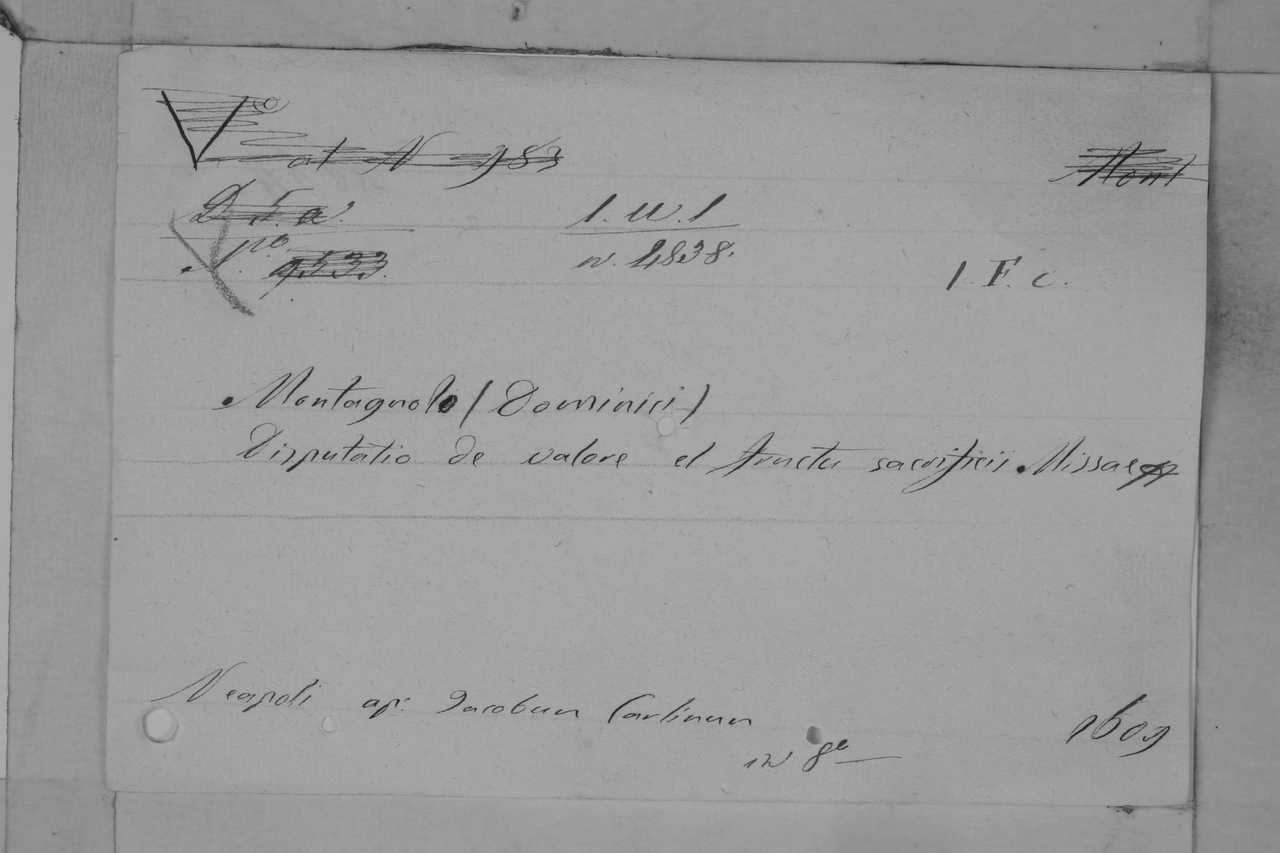 at N 983
Mont
1. W. 1
n. 4838.
1. F. c.
Montagnolo (Dominici)
Disputatio de valore et fructu sacrificii Missae
Neapoli ap: Jacobum Carlinum
in 8º
1609